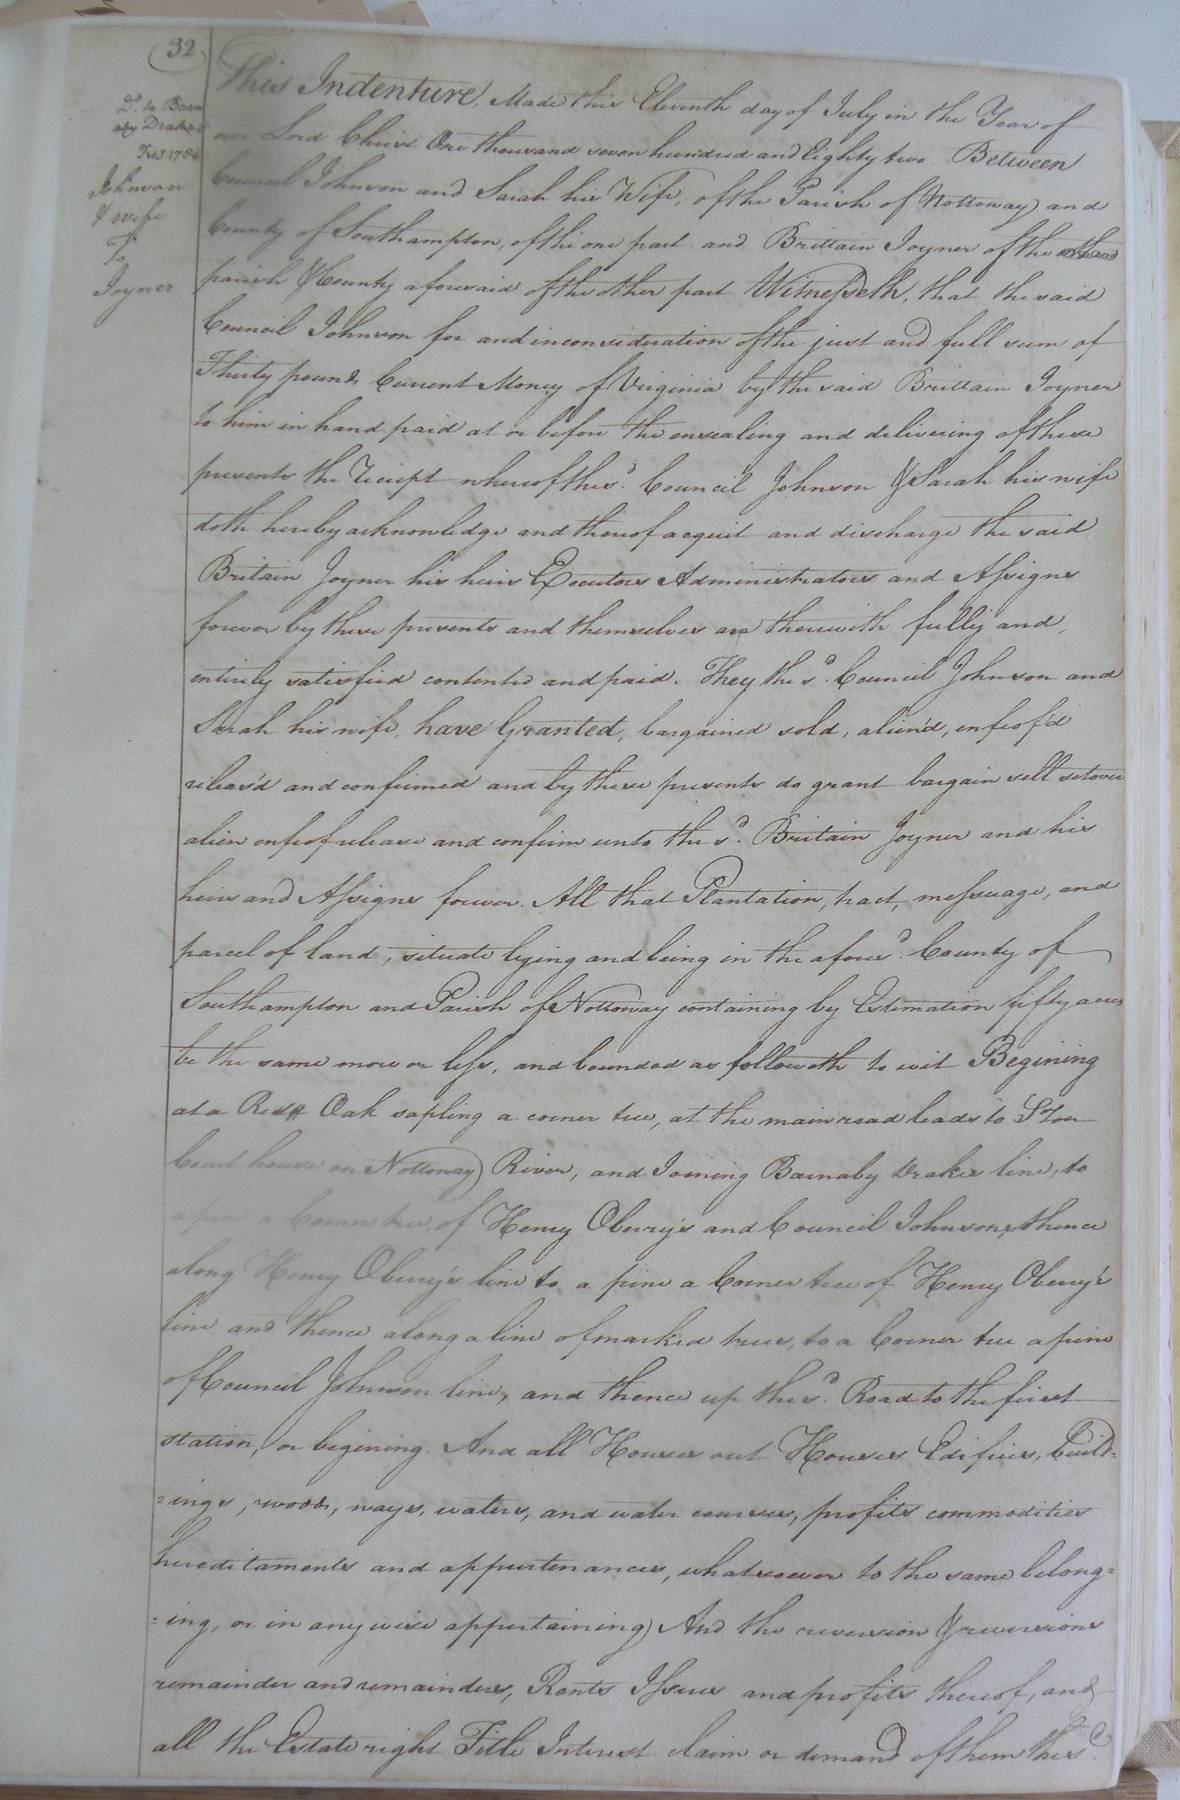 (32)
Dd. to Barn
aby Drake
Feb 1784
Johnson
& wife
To
Joyner
This Indenture, Made this Eleventh day of July in the Year of
our Lord Christ One thousand seven hundred and Eighty two Between
Council Johnson and Sarah his Wife, of the Parish of Nottoway and
County of Southampton, of the one part and Brittain Joyner of the
parish & County aforesaid of the other part Witnesseth, that the said
Council Johnson for and in consideration of the just and full sum of
Thirty pounds Current Money of Virginia by the said Brittain Joyner
to him in hand paid at or before the ensealing and delivering of these
presents the Reciept whereof the sd. Council Johnson & Sarah his wife
doth hereby acknowledge and thereof acquit and discharge the said
Britain Joyner his heirs Executors Administrators and Assigns
forever by these presents and themselves are therewith fully and,
entirely satisfied contented and paid. They the sd. Council Johnson and
Sarah his wife, have Granted, bargained sold, alien'd, enfeof'd
releas'd and confirmed and by these presents do grant bargain sell setover
alien enfeof release and confirm unto the sd. Britain Joyner and his
heirs and Assigns forever. All that Plantation, tract, messuage, and
parcel of land, situate lying and being in the afores'd. County of
Southampton and Parish of Nottoway containing by Estimation fifty acres
be the same more or less, and bounded as followeth to wit Begining
at a Red Oak sapling a corner tree, at the main road leads to S'ton
Court house on Nottoway River, and Joining Barnaby Drakes line, to
a pine a Corner tree, of Henry Oberry's and Council Johnsons, thence
along Henry Oberry's line to a pine a Corner tree of Henry Oberry's
line and thence along a line of marked trees, to a Corner tree a pine
of Council Johnson line, and thence up the sd. Road to the first
station, or begining. And all Houses out Houses Edifices, Build=
=ings, woods, ways, waters, and water courses, profits commodities
hereditaments and appurtenances, whatsoever to the same belong=
=ing, or in any wise appertaining) And the reversion & reversions
remainder and remainders, Rents Issues and profits thereof, and
all the Estate right Title Interest claim or demand of them the sd.